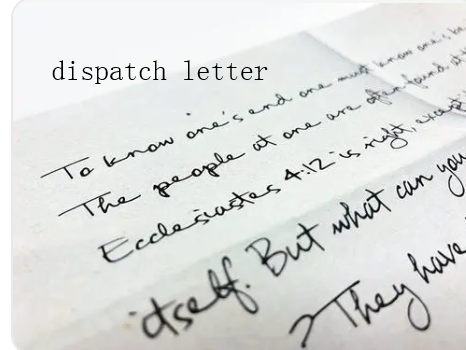 dispatch letter
To know one's end one must know one's be
The people at one are often found at t
Ecclesiastes 4:12 is right, except
itself. But what can you
They have